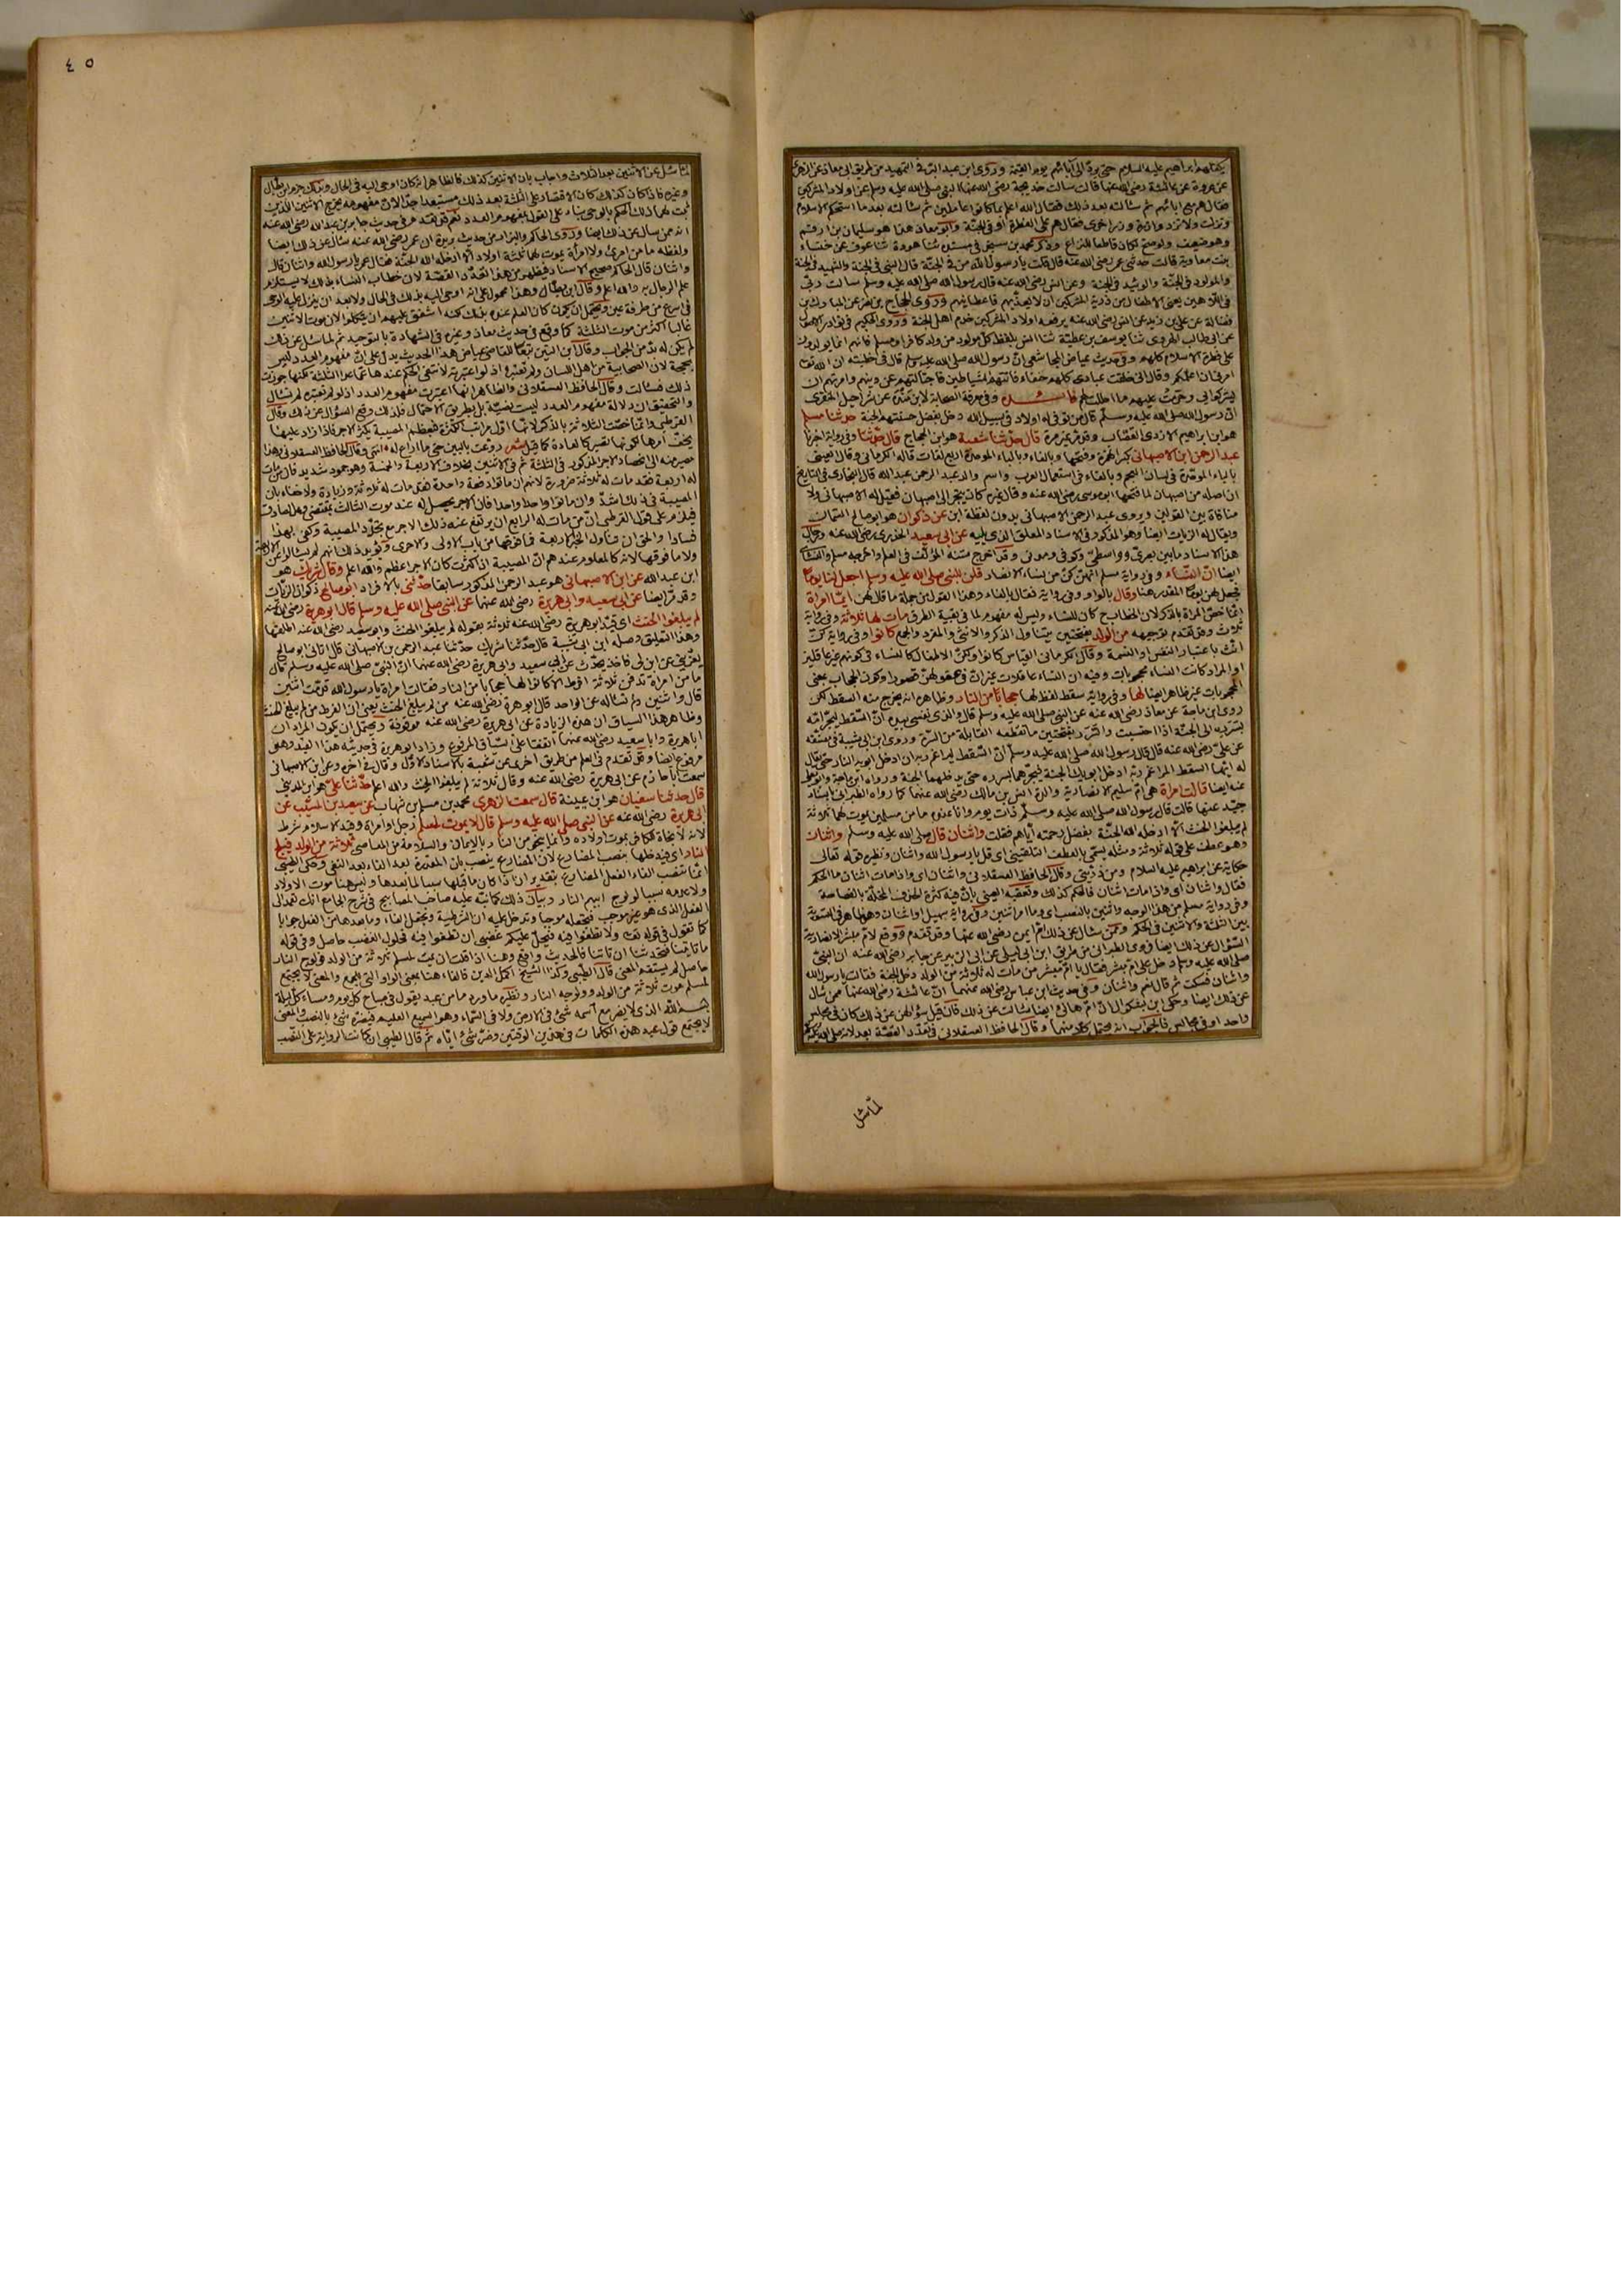 يكفلهم ابراهيم عليه السلام حتى يردّ الى آبائهم يوم القيمة وروى ابن عبد البرّ في التمهيد من طريق ابى معاذ عن الزهرى
عن عروة عن عائشة رضى الله عنها قالت سالت خديجة رضى الله عنها النبى صلى الله عليه وسلم عن اولاد المشركين
فقال هم مع ابائهم ثم سالته بعد ذلك فقال الله اعلم بما كانوا عاملين ثم سالته بعد ما استحكم الاسلام
ونزلت ولا تزر وازرة وزر اخرى فقال هم على الفطرة او فى الجنّة وابو معاذ هذا هو سليمان بن ارقم
وهو ضعيف ولو صح لكان قاطعا للنزاع وذكر محمد بن سنجر فى مسنده ثنا هوذة ثنا عوف عن خنساء
بنت معاوية قالت حدثنى عمى رضى الله عنه قال قلت يا رسول الله من فى الجنّة قال النبى فى الجنة والشهيد فى الجنة
والمولود فى الجنّة والوئيد فى الجنة وعن انس رضى الله عنه قال رسول الله صلى الله عليه وسلم سالت ربّى
فى اللاهين يعنى الاطفال من ذرية المشركين ان لا يعذّبهم فاعطانيهم وروى الحجاج بن نصير عن المبارك بن
فضالة عن على بن زيد عن انس رضى الله عنه يرفعه اولاد المشركين خدم اهل الجنة وروى الحكيم فى نوادر الاصول
عن ابى طالب الهروى ثنا يوسف بن عطيّة ثنا انس بلفظ كل مولود من ولد كافر او مسلم فانهم انما يولدون
على فطرة الاسلام كلهم وفى حديث عياض المجاشعى انّ رسول الله صلى الله عليه وسلم قال فى خطبته ان الله تعالى
امرنى ان اعلمكم وقال انى خلقت عبادى كلهم حنفاء فاتتهم الشياطين فاجتالتهم عن دينهم وامرتهم ان
يشركوا بى وحرّمت عليهم ما احللت لهم فائدة وفى معرفة الصحابة لابن مندة عن شراحيل المنقرى
انّ رسول الله صلى الله عليه وسلّم قال من توفى له اولاد فى سبيل الله دخل بفضل حسنتهم الجنة حدثنا مسلم
هو ابن ابراهيم الازدى القصّاب وقد مرّ غير مرة قال حدّثنا شعبة هو ابن الحجاج قال حدّثنا وفى رواية اخبرنا
عبد الرحمن ابن الاصبهانى بكسر الهمزة وفتحها وبالفاء وبالباء الموحدة اربع لغات قاله الكرمانى وقال العينى
ان اصله من اصبهان لما فتحها ابو موسى رضى الله عنه وقال غيره كان يتجر الى اصبهان فقيل له الاصبهانى ولا
منافاة بين القولين ويروى عبد الرحمن الاصبهانى بدون لفظة ابن عن ذكوان هو ابو صالح السمان
ويقال له الزيات ايضا وهو المذكور فى الاسناد المعلق الذى يليه عن ابى سعيد الخدرى رضى الله عنه ورجال
هذا الاسناد ما بين بصرى وواسطى وكوفى ومدنى وقد اخرج متنه المؤلّف فى العلم واخرجه مسلم والنسائى
ايضا انّ النساء وفى رواية مسلم انهنّ كنّ من نساء الانصار قلن للنبى صلى الله عليه وسلم اجعل لنا يوما
فجعل لهن يوما المقدر هنا وقال بالواو وفى رواية فقال بالفاء وهذا القول من جملة ما قال لهن ايّما امراة
انما خصّ المراة بالذكر لان الخطاب كان للنساء وليس له مفهوم لما فى بقية الطرق مات لها ثلاثة وفى رواية
ثلاث وقد تقدم توجيهه من الولد بفتحتين يتناول الذكر والانثى والمفرد والجمع كانوا وفى رواية كنّ
انّث باعتبار النفس او النسمة وقال الكرمانى القياس كانوا ولكن الاطفال كالنساء فى كونهم غير عاقلين
لها وفى رواية سقط لفظ لها حجابا من النار وظاهره انه يخرج منه السقط لكن
روى ابن ماجة عن معاذ رضى الله عنه عن النبى صلى الله عليه وسلم قال والذى نفسى بيده انّ السقط ليجرّ امّه
بسرره الى الجنّة اذا احتسبت والسرر بفتحتين ما تقطعه القابلة من السرّة وروى ابن ابى شيبة فى مصنّفه
عن علىّ رضى الله عنه قال قال رسول الله صلى الله عليه وسلّم انّ السّقط ليراغم ربه ان ادخل ابويه النار حتى يقال
له ايّها السقط المراغم ربّه ادخل ابويك الجنة فيجرّهما بسرره حتى يدخلهما الجنة ورواه ابن ماجة وابو يعلى
عنه ايضا قالت امراة هى ام سليم الانصارية والدة انس بن مالك رضى الله عنهما كما رواه الطبرانى باسناد
جيّد عنها قالت قال رسول الله صلى الله عليه وسلّم ذات يوم وانا عنده ما من مسلمين يموت لهما ثلاثة
لم يبلغوا الحنث الا ادخله الله الجنّة بفضل رحمته ايّاهم فقلت واثنان قال صلى الله عليه وسلم واثنان
وهو عطف على قوله ثلاثة ومثله يسمّى بالعطف التلقينى اى قل يا رسول الله واثنان ونظيره قوله تعالى
حكاية عن ابراهيم عليه السلام ومن ذرّيتى وقال الحافظ العسقلانى واثنان اى واذا مات اثنان ما الحكم
فقال واثنان اى واذا مات اثنان فالحكم كذلك وتعقبه العينى بانّ فيه كثرة الحذف المخلّة بالفصاحة
وفى رواية مسلم من هذا الوجه واثنين بالنصب اى وما امر اثنين وفى رواية سهيل او اثنان وهو ظاهر فى التسوية
بين الثلثة والاثنين فى الحكم وممّن سال عن ذلك ام ايمن رضى الله عنها وقد تقدم ووقع لام مبشر الانصارية
السّؤال عن ذلك ايضا فروى الطبرانى من طريق ابن ابى ليلى عن ابى الزبير عن جابر رضى الله عنه ان النبىّ
صلى الله عليه وسلم دخل على ام مبشر فقال يا امّ مبشر من مات له ثلاثة من الولد دخل الجنة فقالت يا رسول الله
واثنان فسكت ثم قال نعم واثنان وفى حديث ابن عباس رضى الله عنهما انّ عائشة رضى الله عنها ممن سال
عن ذلك ايضا وحكى ابن بشكوال انّ امّ هانئ ايضا سالت عن ذلك فان قيل سؤالهن عن ذلك كان فى مجلس
واحد او فى مجالس فالجواب انه يحتمل كلا منهما وقال الحافظ العسقلانى فى تعدّد القصّة بعد لانه صلى الله عليه وسلم
لمّا سئل
٤٥
لمّا سئل عن الاثنين بعد الثلاث واجاب بان الاثنين كذلك فالظاهر انه كان اوحى اليه فى الحال وبذلك جزم ابن بطّال
وغيره فاذا كان كذلك كان الاقتصار على الثلثة بعد ذلك مستبعدا جدّا لانّ مفهومه يخرج الاثنين اللذين
ثبت لهما ذلك الحكم بالوحى بناء على القول بمفهوم العدد نعم قد تقدم فى حديث جابر بن عبد الله رضى الله عنه
انه ممن سال عن ذلك ايضا وروى الحاكم والبزار من حديث بريدة ان عمر رضى الله عنه سال عن ذلك ايضا
ولفظه ما من امرئ ولا امرأة يموت لها ثلثة اولاد الا ادخله الله الجنّة فقال عمر يا رسول الله واثنان قال
واثنان قال الحاكم صحيح الاسناد فيظهر من هذا تعدّد القصّة لان خطاب النساء بذلك لا يستلزم
علم الرجال به والله اعلم وقال ابن بطّال وهذا محمول على انه اوحى اليه بذلك فى الحال ولا بعد ان ينزل عليه الوحى
فى اسرع من طرفة عين ويحتمل ان يكون كان العلم عنده بذلك لكنه اشفق عليهم ان يتّكلوا لان موت الاثنين
غالبا اكثر من موت الثلثة كما وقع فى حديث معاذ وغيره فى الشهادة بالتوحيد ثم لما سئل عن ذلك
لم يكن له بدّ من الجواب وقال ابن التين تبعا للقاضى عياض هذا الحديث يدل على انّ مفهوم العدد ليس
بحجة لان الصحابية من اهل اللسان ولم تعتبره اذ لو اعتبرته لانتفى الحكم عندها عمّا عدا الثلثة لكنها جوزت
ذلك فسالت وقال الحافظ العسقلانى والظاهر انّها اعتبرت مفهوم العدد اذ لو لم تعتبره لم تسال
والتحقيق ان دلالة مفهوم العدد ليست نصّية بل بطريق الاحتمال فلذلك وقع السؤال عن ذلك وقال
القرطبى وانما خصّت الثلاثة بالذكر لانّها اوّل مراتب الكثرة فتعظم المصيبة بكثر الاجر فاذا زاد عليها
يخفّ امرها لكونها تصير كالعادة كما قيل شعر روّعت بالبين حتى ما اراع له انتهى وقال الحافظ العسقلانى وهذا
مصير منه الى انحصار الاجر المذكور فى الثلثة ثم فى الاثنين بخلاف الاربعة والخمسة وهو جمود شديد فان من مات
له اربعة فقد مات له ثلاثة ضرورة لانهم ان ماتوا دفعة واحدة فقد مات له ثلاثة وزيادة ولا خفاء بان
المصيبة فى ذلك اشدّ وان ماتوا واحدا واحدا فان الاجر يحصل له عند موت الثالث بمقتضى وعد الصادق
فيلزم على قول القرطبى انّ من مات له الرابع ان يرتفع عنه ذلك الاجر مع تجدّد المصيبة وكفى بهذا
فسادا والحق ان تناول الخبر الاربعة فما فوقها من باب الاولى والاحرى ويؤيد ذلك انهم لم يسالوا عن الاربعة
ولا ما فوقها لانه كالمعلوم عندهم انّ المصيبة اذا كثرت كان الاجر اعظم والله اعلم وقال شريك هو
ابن عبد الله عن ابن الاصبهانى هو عبد الرحمن المذكور سابقا حدّثنى بالافراد ابو صالح ذكوان الزيّات
وقد مرّ ايضا عن ابى سعيد وابى هريرة رضى الله عنهما عن النبى صلى الله عليه وسلم قال ابو هريرة رضى الله عنه
لم يبلغوا الحنث اى قيّد ابو هريرة رضى الله عنه ثلاثة بقوله لم يبلغوا الحنث وابو سعيد رضى الله عنه اطلقها
وهذا التعليق وصله ابن ابى شيبة قال حدّثنا شريك حدّثنا عبد الرحمن بن الاصبهانى قال اتانى ابو صالح
يعزّينى عن ابن لى فاخذ يحدّث عن ابى سعيد وابى هريرة رضى الله عنهما انّ النبىّ صلى الله عليه وسلم قال
ما من امراة تدفن ثلاثة افرط الا كانوا لها حجابا من النار فقالت امراة يا رسول الله قدّمت اثنين
قال واثنين ولم تساله عن الواحد قال ابو هريرة رضى الله عنه من لم يبلغ الحنث يعنى ان الفرط من لم يبلغ الحنث
وظاهر هذا السياق ان هذه الزيادة عن ابى هريرة رضى الله عنه موقوفة ويحتمل ان يكون المراد ان
ابا هريرة وابا سعيد رضى الله عنهما اتفقا على السّياق المرفوع وزاد ابو هريرة فى حديثه هذا القيد وهو
مرفوع ايضا وقد تقدم فى العلم من طريق اخرى عن شعبة بالاسناد الاوّل وقال فى آخره وعن ابن الاصبهانى
سمعت ابا حازم عن ابى هريرة رضى الله عنه وقال ثلاثة لم يبلغوا الحنث والله اعلم حدّثنا علىّ هو ابن المدينى
قال حدثنا سفيان هو ابن عيينة قال سمعت الزهرى محمد بن مسلم بن شهاب عن سعيد بن المسيّب عن
ابى هريرة رضى الله عنه عن النبى صلى الله عليه وسلم قال لا يموت لمسلم رجل او امراة وقيد الاسلام شرط
لانه لا نجاة للكافر بموت اولاده وانما ينجو من النار بالايمان والسلامة من المعاصى ثلاثة من الولد فيلج
النار اى فيدخلها بنصب المضارع لان المضارع ينصب بان المقدرة بعد الفاء بعد النفى وحكى الطيبى
انما تنصب الفاء الفعل المضارع بتقدير ان اذا كان ما قبلها سببا لما بعدها وليس هنا موت الاولاد
ولا عدمه سببا لولوج ابيهم النار وبيان ذلك كما نبّه عليه صاحب المصابيح فى شرح الجامع انك تعمد الى
الفعل الذى هو غير موجب فتجعله موجبا وتدخل عليه ان الشرطية وتجعل الفاء وما بعدها من الفعل جوابا
كما تقول فى قوله تعالى ولا تطغوا فيه فيحلّ عليكم غضبى ان تطغوا فيه فحلول الغضب حاصل وفى قوله
ما تاتينا فتحدثنا ان تاتنا فالحديث واقع وهنا اذا قلت ان يمت لمسلم ثلاثة من الولد فولوج النار
حاصل لم يستقم المعنى قال الطّيبى وكذا الشيخ اكمل الدين فالفاء هنا بمعنى الواو التى للجمع والمعنى لا يجتمع
لمسلم موت ثلاثة من الولد وولوجه النار ونظيره ما ورد ما من عبد يقول فى صباح كل يوم ومساء كل ليلة
بسم الله الذى لا يضر مع اسمه شىء فى الارض ولا فى السّماء وهو السميع العليم فيضرّه شىء بالنصب والمعنى
لا يجتمع قول عبد هذه الكلمات فى هذين الوقتين وضرّ شىء ايّاه ثم قال الطيبى ان كانت الرواية على النصب